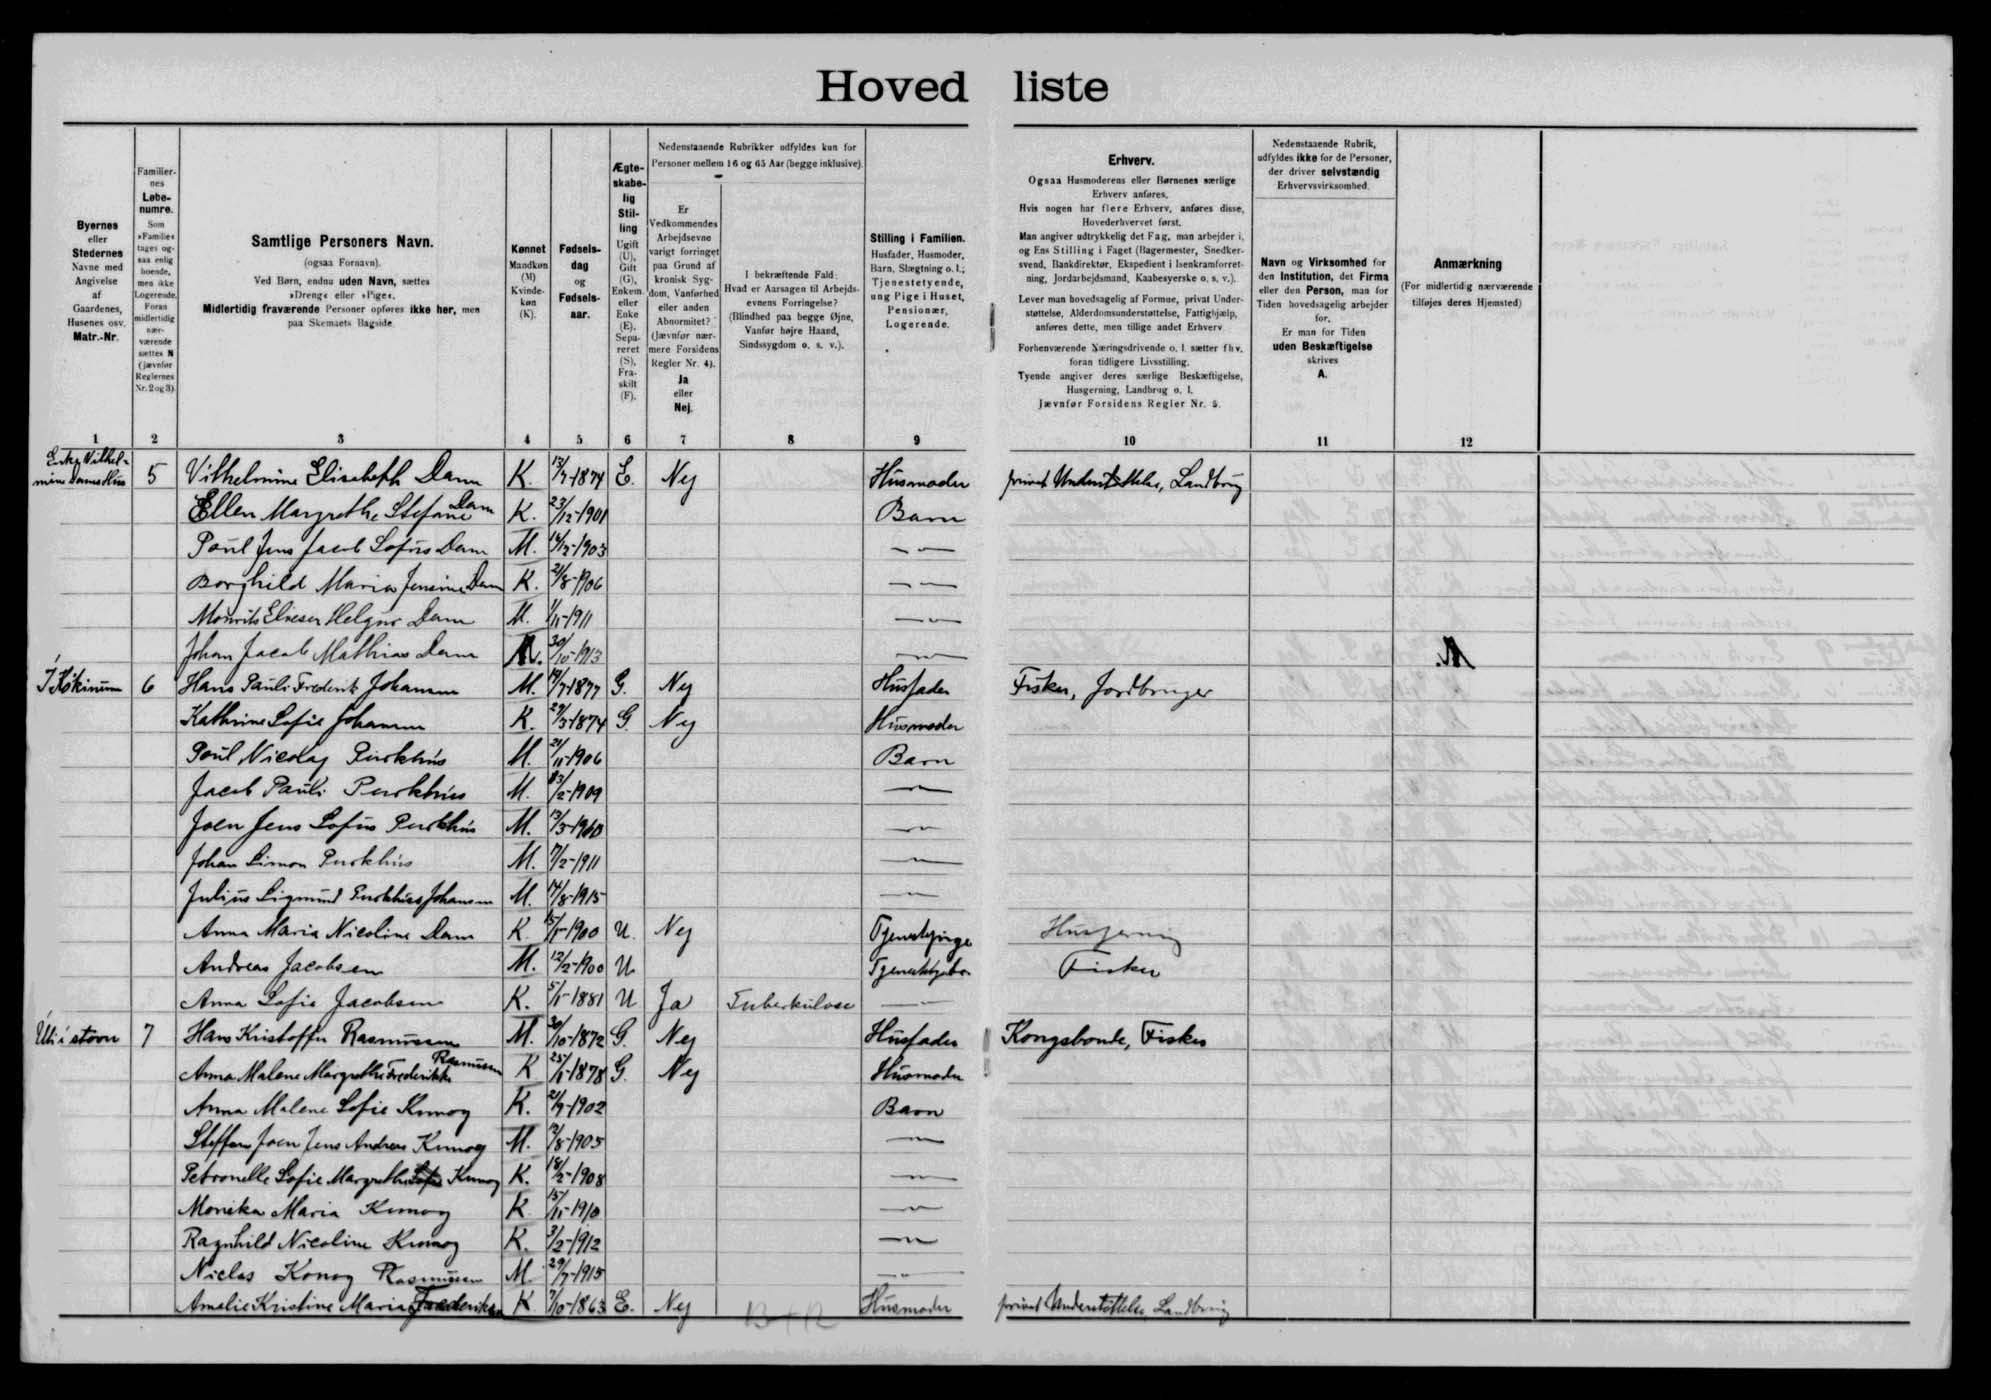 Hovedliste
Nedenstaaende Rubrikker udfyldes kun for
Personer mellem 16 og 65 Aar (begge inklusive).
Byernes
eller
Stedernes
Navne med
Angivelse
af
Gaardenes,
Husenes osv.
Matr.-Nr.
Familier-
nes
Løbe-
numre.
Som
»Familie«
tages og-
saa enlig
boende,
men ikke
Logerende.
Foran
midlertidig
nær-
værende
sættes N
(jævnfør
Reglernes
Nr. 2 og 3).
Samtlige Personers Navn.
(ogsaa Fornavn).
Ved Børn, endnu uden Navn, sættes
»Dreng« eller »Pige«.
Midlertidig fraværende Personer opføres ikke her, men
paa Skemaets Bagside.
Kønnet
Mandkøn
(M)
Kvinde-
køn
(K).
Fødsels-
dag
og
Fødsels-
aar.
Ægte-
skabe-
lig
Stil-
ling
Ugift
(U),
Gift
(G),
Enkem.
eller
Enke
(E),
Sepa-
reret
(S),
Fra-
skilt
(F).
Er
Vedkommendes
Arbejdsevne
varigt forringet
paa Grund af
kronisk Syg-
dom, Vanførhed
eller anden
Abnormitet?
(Jævnfør nær-
mere Forsidens
Regler Nr. 4).
Ja
eller
Nej.
I bekræftende Fald:
Hvad er Aarsagen til Arbejds-
evnens Forringelse?
(Blindhed paa begge Øjne,
Vanfør højre Haand,
Sindssygdom o. s. v.).
Stilling i Familien.
Husfader, Husmoder,
Barn, Slægtning o. l.;
Tjenestetyende,
ung Pige i Huset,
Pensionær,
Logerende.
Erhverv.
Ogsaa Husmoderens eller Børnenes særlige
Erhverv anføres.
Hvis nogen har flere Erhverv, anføres disse,
Hovederhvervet først.
Man angiver udtrykkelig det Fag, man arbejder i,
og Ens Stilling i Faget (Bagermester, Snedker-
svend, Bankdirektør, Ekspedient i Isenkramforret-
ning, Jordarbejdsmand, Kaabesyerske o. s. v.).
Lever man hovedsagelig af Formue, privat Under-
støttelse, Alderdomsunderstøttelse, Fattighjælp,
anføres dette, men tillige andet Erhverv.
Forhenværende Næringsdrivende o. l. sætter fhv.
foran tidligere Livsstilling.
Tyende angiver deres særlige Beskæftigelse,
Husgerning, Landbrug o. l.
Jævnfør Forsidens Regler Nr. 5.
Nedenstaaende Rubrik,
udfyldes ikke for de Personer,
der driver selvstændig
Erhvervsvirksomhed.
Navn og Virksomhed for
den Institution, det Firma
eller den Person, man for
Tiden hovedsagelig arbejder
for.
Er man for Tiden
uden Beskæftigelse
skrives
A.
Anmærkning
(For midlertidig nærværende
tilføjes deres Hjemsted)
1 2 3 4 5 6 7 8 9 10 11 12
Enke Vilhel-
mine Dams Hús 5 Vilhelmine Elisabeth Dam K. 13/7-1874 E. Nej Husmoder privat Understøttelse, Landbrug
Ellen Margrethe Stefane Dam K. 23/12-1901 Barn
Poul Jens Jacob Sofus Dam M. 14/12-1903 —"—
Borghild Maria Jensine Dam K. 21/8-1906 —"—
Mourits Elieser Helgur Dam M. 1/11-1911 —"—
Johan Jacob Mathias Dam M. 30/10-1913 —"— M.
Í Kókinum 6 Hans Pauli Frederik Johansen M. 19/7-1877 G. Nej Husfader Fisker, Jordbruger
Kathrine Sofie Johansen K. 29/3-1874 G. Nej Husmoder
Poul Nicolaj Purkhús M. 21/11-1906 Barn
Jacob Pauli Purkhús M. 23/2-1909 —"—
Joen Jens Sofus Purkhús M. 13/3-1910 —"—
Johan Simon Purkhús M. 7/2-1911 —"—
Julius Sigmund Purkhús Johansen M. 14/8-1915 —"—
Anna Maria Nicoline Dam K. 15/1-1900 U. Nej Husgerning
Andreas Jacobsen M. 12/2-1900 U Fisker
Anna Sofie Jacobsen K. 5/1-1881 U Ja Tuberkulose —"—
Úti í stovu 7 Hans Kristoffer Rasmussen M. 30/10-1872 G. Nej Husfader Kongsbonde, Fisker
Anna Malene Margrethe Frederikke Rasmussen K 25/1-1878 G. Nej Husmoder
Anna Malene Sofie Kunoy K. 21/9-1902 Barn
Steffan Joen Jens Andreas Kunoy M. 12/8-1905 —"—
Petronelle Sofie Margrethe Kunoy K. 18/2-1908 —"—
Monika Maria Kunoy K. 15/11-1910 —"—
Ragnhild Nicoline Kunoy K. 3/2-1912 —"—
Niclas Konoy Rasmussen M. 29/7-1915 —"—
Amalie Kristine Maria Frederiksen K. 7/10-1863 E. Nej Husmoder privat Understøttelse, Landbrug